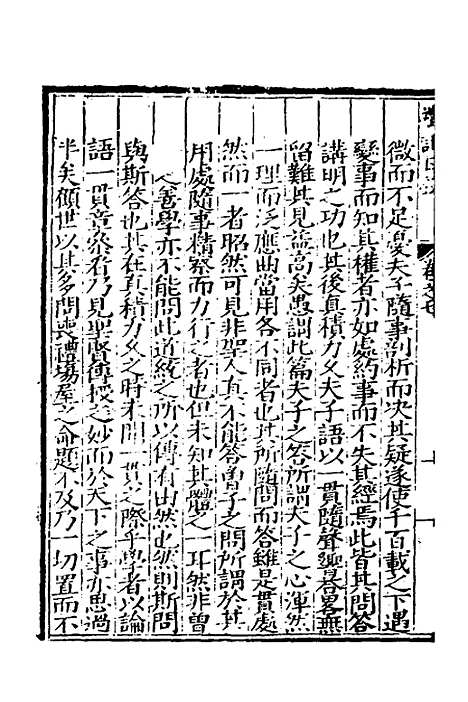 禮記集說
卷之七
微而不足憂夫子隨事剖析而決其疑遂使千百載之下遇
變事而知其權者亦如處約事而不失其經焉此皆其問答
講明之功也其後真積力久夫子語以一貫隨聲響荅畧無
留難其見益高矣愚謂此篇夫子之答所謂夫子之心渾然
一理而泛應曲當用各不同者也其所隨問而答雖是貫處
然而一者昭然可見非聖人真不能答曽子之問所謂於其
用處隨事精察而力行之者也但未知其體之一耳然非曽
之善學亦不能問此道統之所以傳有由然也然則斯問
與斯答也其在真積力久之時未聞一貫之際乎學者以論
語一貫章參看乃見聖賢傳授之妙而於天下之事亦思過
半矣顧世以其多問喪禮場屋之命題不及乃一切置而不